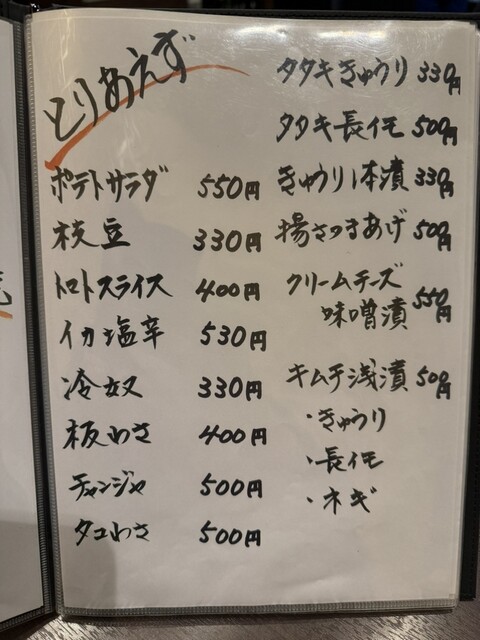 とりあえず
ポテトサラダ 550円
枝豆 330円
トマトスライス 400円
イカ塩辛 530円
冷奴 330円
板わさ 400円
チャンジャ 500円
タコわさ 500円
タタキきゅうり 330円
タタキ長イモ 500円
きゅうり1本漬 330円
揚さつまあげ 500円
クリームチーズ
味噌漬 550円
キムチ浅漬 500円
・きゅうり
・長イモ
・ネギ